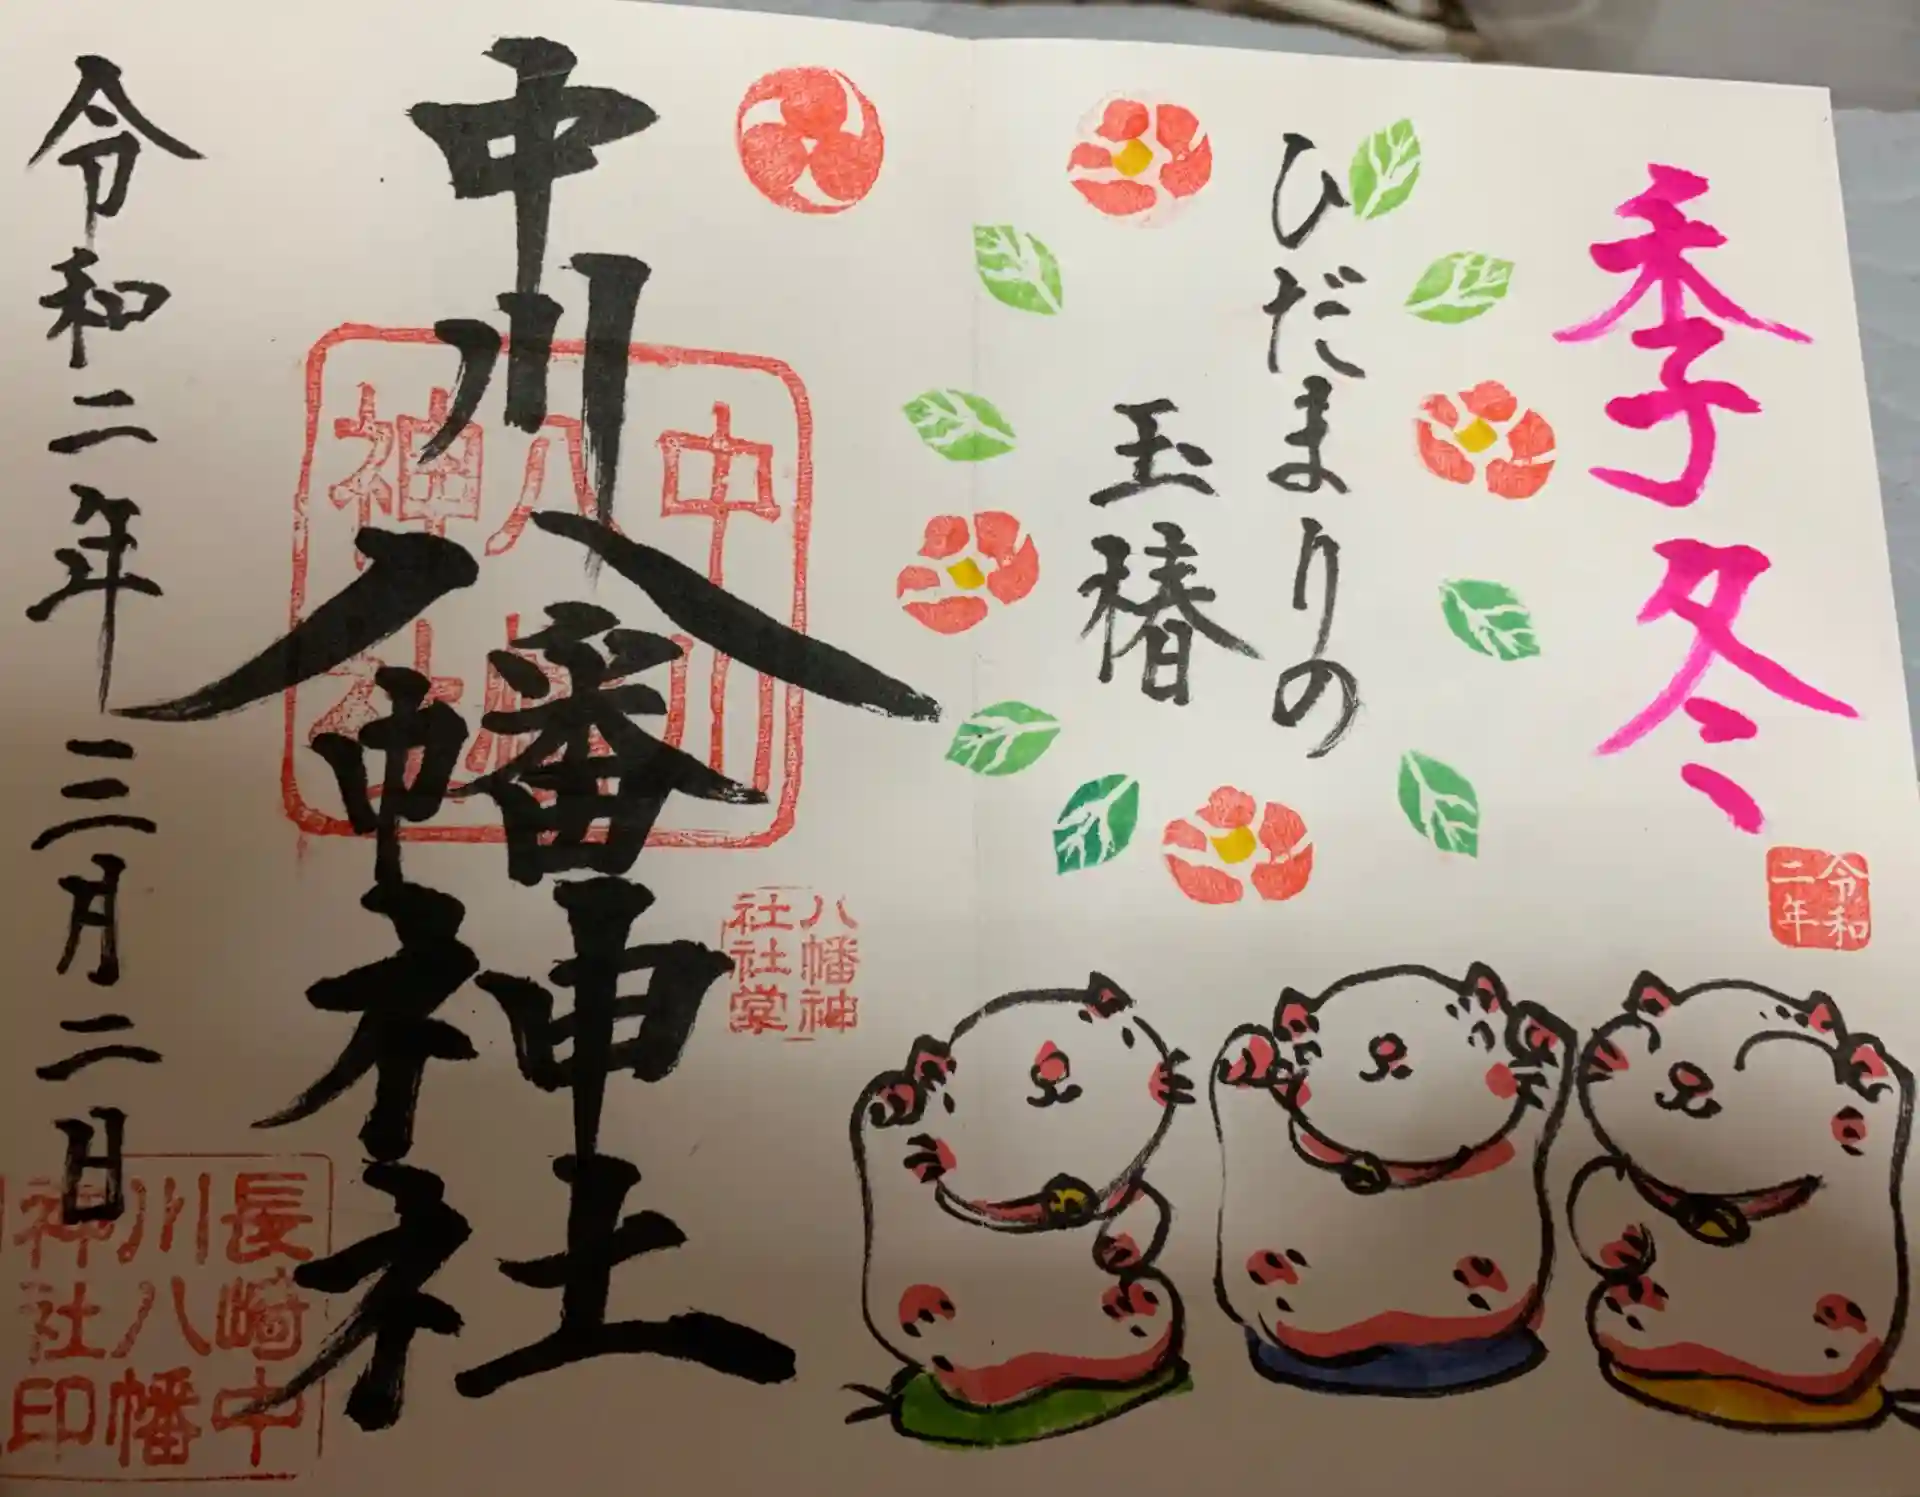 季冬
令和
二年
ひだまりの
玉椿
中川八幡神社
中川
八幡
神社
八幡神
社社堂
令和二年三月二日
長崎中
川八幡
神社印